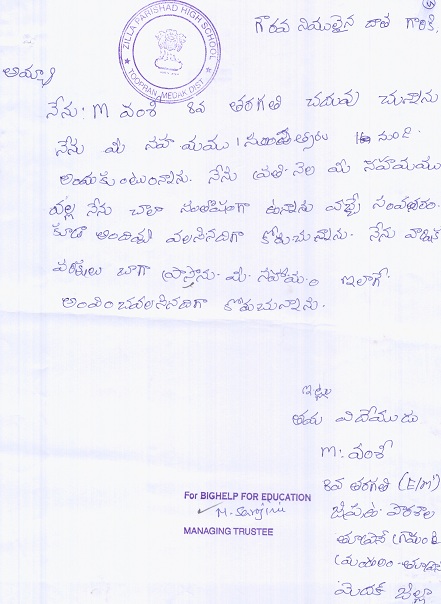 గౌరవ నిములైన దాత గారికి,
ZILLA PARISHAD HIGH SCHOOL
TOOPRAN, MEDAK DIST
అయ్యా
నేను: M వంశీ 8వ తరగతి చదువు చున్నాను
నేను మీ సహాయము 1 సంవత్సరం నుండి
అందుకుంటున్నాను. నేను ప్రతి నెల మీ సహాయము
వల్ల నేను చాలా సంతోషంగా ఉన్నాను వచ్చే సంవత్సరం.
కూడా అందివ్వ వలసినదిగా కోరుచున్నాను. నేను వార్షిక
పరీక్షలు బాగా వ్రాస్తాను. మీ సహాయం ఇలాగే
అందించవలసినదిగా కోరుచున్నాను.
ఇట్లు
తమ విదేయుడు
M. వంశీ
8వ తరగతి (E/M)
జిప్రఉ పాఠశాల
మెదక్ జిల్లా
For BIGHELP FOR EDUCATION
MANAGING TRUSTEE